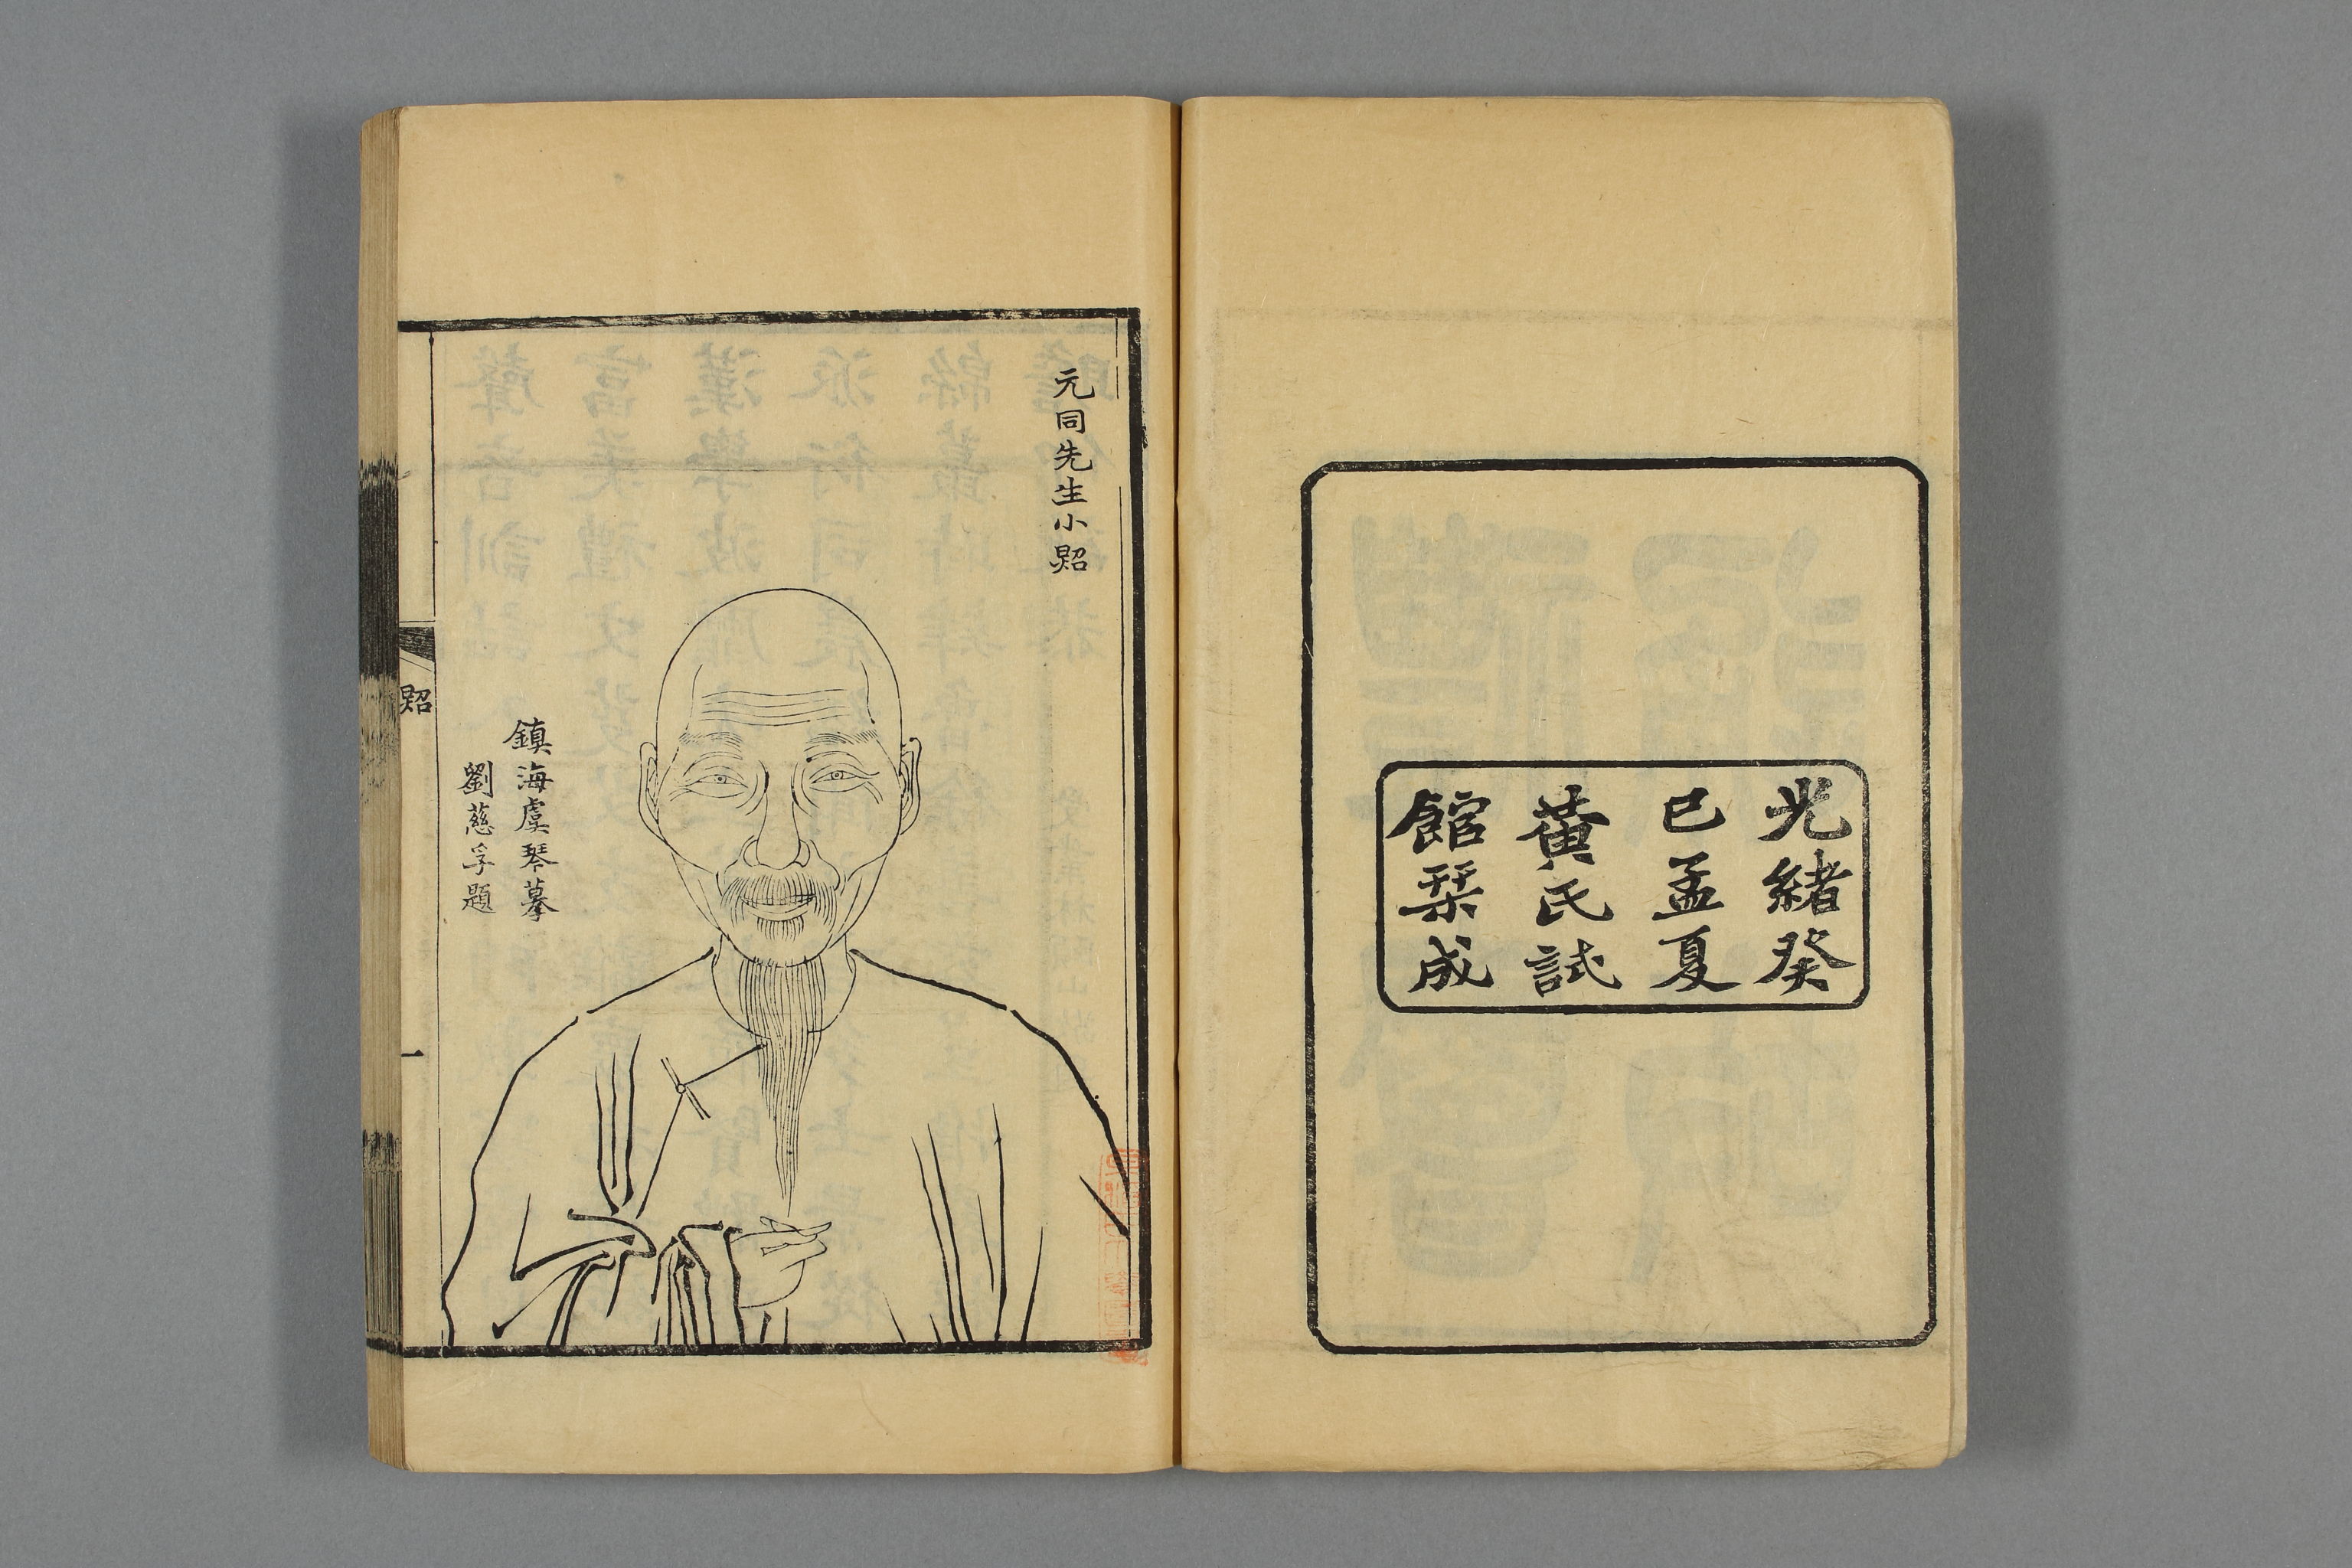 光緒癸
巳孟夏
黃氏試
館栞成
元同先生小照
鎮海虞琴摹
劉慈孚題
照
一